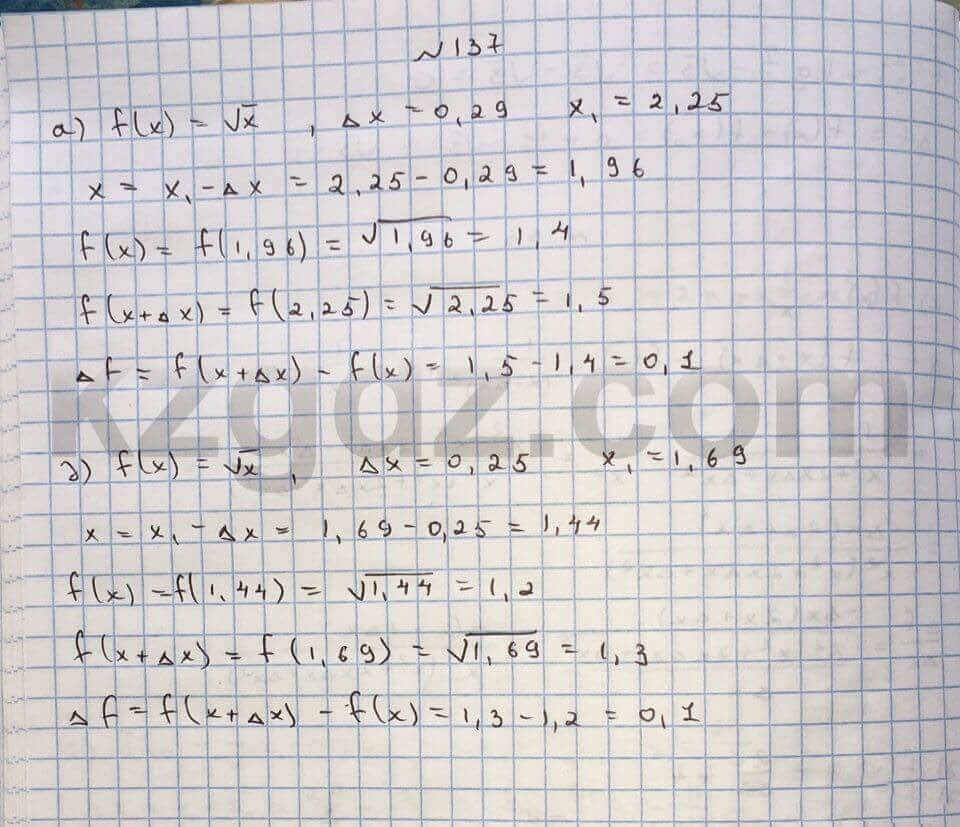 №137
а) f(x) = √x , Δx = 0,29 x₁ = 2,25
x = x₁ - Δx = 2,25 - 0,29 = 1,96
f(x) = f(1,96) = √1,96 = 1,4
f(x+Δx) = f(2,25) = √2,25 = 1,5
Δf = f(x+Δx) - f(x) = 1,5 - 1,4 = 0,1
kzgdz.com
д) f(x) = √x , Δx = 0,25 x₁ = 1,69
x = x₁ - Δx = 1,69 - 0,25 = 1,44
f(x) = f(1,44) = √1,44 = 1,2
f(x+Δx) = f(1,69) = √1,69 = 1,3
Δf = f(x+Δx) - f(x) = 1,3 - 1,2 = 0,1